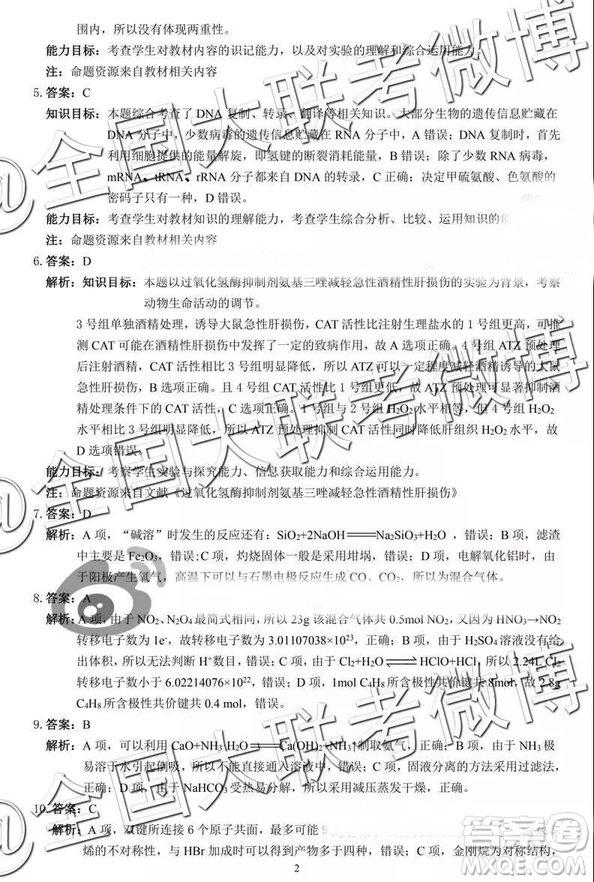 围内，所以没有体现两重性。
能力目标：考查学生对教材内容的识记能力，以及对实验的理解和综合运用能力
注：命题资源来自教材相关内容
5. 答案：C
知识目标：本题综合考查了 DNA 复制、转录、翻译等相关知识。大部分生物的遗传信息贮藏在
DNA 分子中，少数病毒的遗传信息贮藏在 RNA 分子中，A 错误；DNA 复制时，首先
利用细胞提供的能量解旋，即氢键的断裂消耗能量，B 错误；除了少数 RNA 病毒，
mRNA、tRNA、rRNA 分子都来自 DNA 的转录，C 正确；决定甲硫氨酸、色氨酸的
密码子只有一种，D 错误。
能力目标：考查学生对教材知识的理解能力，考查学生综合分析、比较、运用知识的能
注：命题资源来自教材相关内容
6. 答案：D
解析：知识目标：本题以过氧化氢酶抑制剂氨基三唑减轻急性酒精性肝损伤的实验为背景，考察
动物生命活动的调节。
3 号组单独酒精处理，诱导大鼠急性肝损伤，CAT 活性比注射生理盐水的 1 号组更高，可推
测 CAT 可能在酒精性肝损伤中发挥了一定的致病作用，故 A 选项正确。4 号组 ATZ 预处理
后注射酒精，CAT 活性与 3 号组明显降低，所以 ATZ 可以一定程度减轻酒精诱导的大鼠
急性肝损伤，B 选项正确。且 4 号组 CAT 活性比 3 号组明显降低，所以 ATZ 预处理可显著抑制酒
精处理条件下的 CAT 活性，C 选项正确。1 号组与 2 号组相等，但 4 号组 H2O2
水平相比 3 号组明显降低，所以 ATZ 预处理抑制 CAT 活性同时降低肝组织 H2O2 水平，故
D 选项错误。
能力目标：考察学生实验与探究能力、信息获取能力和综合运用能力。
注：命题资源来自文献《过氧化氢酶抑制剂氨基三唑减轻急性酒精性肝损伤》
7. 答案：D
解析：A 项，“碱溶”时发生的反应还有：SiO2+2NaOH══Na2SiO3+H2O ，错误；B 项，滤渣
中主要是 Fe2O3，错误；C 项，灼烧固体一般采用坩埚，错误；D 项，电解氧化铝时，由
于阳极产生氧气，高温下可以与石墨电极反应生成 CO、CO2，所以为混合气体。
8. 答案：A
解析：A 项，由于 NO2、N2O4 最简式相同，所以 23g 该混合气体共 0.5mol NO2，又因为 HNO3→NO2
转移电子数为 1e-，故转移电子数为 3.01107038×10²³，正确；B 项，由于 H2SO4 溶液没有给
出体积，所以无法判断 H+数目，错误；C 项，由于 Cl2+H2O⇌HClO+HCl，所以 2.24L Cl2
转移电子数小于 6.02214076×10²²，错误；D 项，1mol C4H8 所含极性共价键共 8mol，故 2.8g
C4H8 所含极性共价键共 0.4 mol，错误。
9. 答案：B
解析：A 项，可以利用 CaO+NH3·H2O══Ca(OH)2+NH3↑制取氨气，正确；B 项，由于 NH3 极
易溶于水引起倒吸，所以不能直接通入溶液中，错误；C 项，固液分离的方法采用过滤法，
正确；D 项，由于 NaHCO3 受热易分解，所以采用减压蒸发干燥，正确。
10. 答案：C
解析：A 项，双键所连接 6 个原子共面，最多可能 9
烯的不对称性，与 HBr 加成时可以得到产物多于四种，错误；C 项，金刚烷为对称结构，
2
@全国大联考微博
@全国大联考微博
@全国大联考微博
答案圈
MXQE.COM